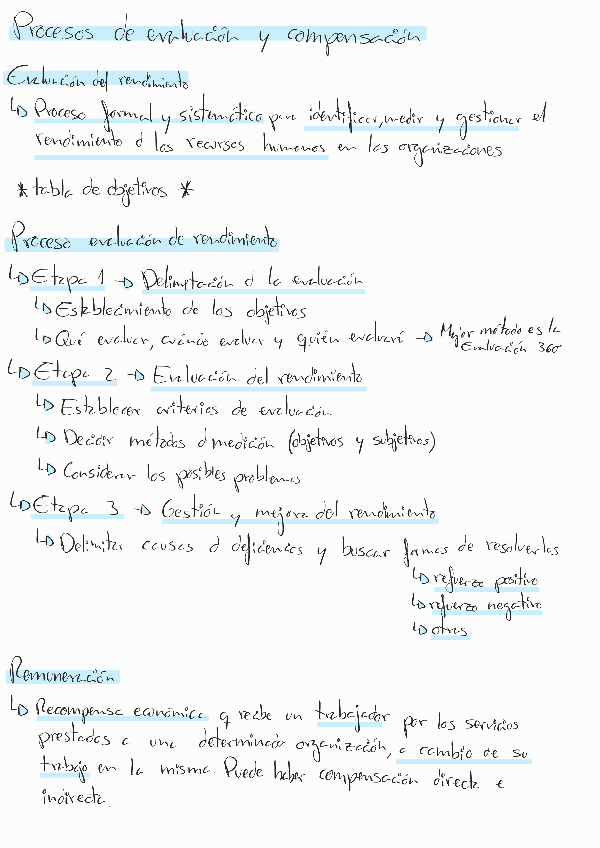 Procesos de evaluación y compensación
Evaluación del rendimiento
↳ Proceso formal y sistemático para identificar, medir y gestionar el
rendimiento d los recursos humanos en las organizaciones
* tabla de objetivos *
Proceso evaluación de rendimiento
↳ Etapa 1 → Delimitación d la evaluación
↳ Establecimiento de los objetivos
↳ Qué evaluar, cuándo evaluar y quién evaluará → Mejor método es la
Evaluación 360º
↳ Etapa 2 → Evaluación del rendimiento
↳ Establecer criterios de evaluación
↳ Decidir métodos d medición (objetivos y subjetivos)
↳ Considerar los posibles problemas
↳ Etapa 3 → Gestión y mejora del rendimiento
↳ Delimitar causas d deficiencias y buscar formas de resolverlas
↳ refuerzo positivo
↳ refuerzo negativo
↳ otras
Remuneración
↳ Recompensa económica q recibe un trabajador por los servicios
prestados a una determinada organización, a cambio de su
trabajo en la misma. Puede haber compensación directa e
indirecta.